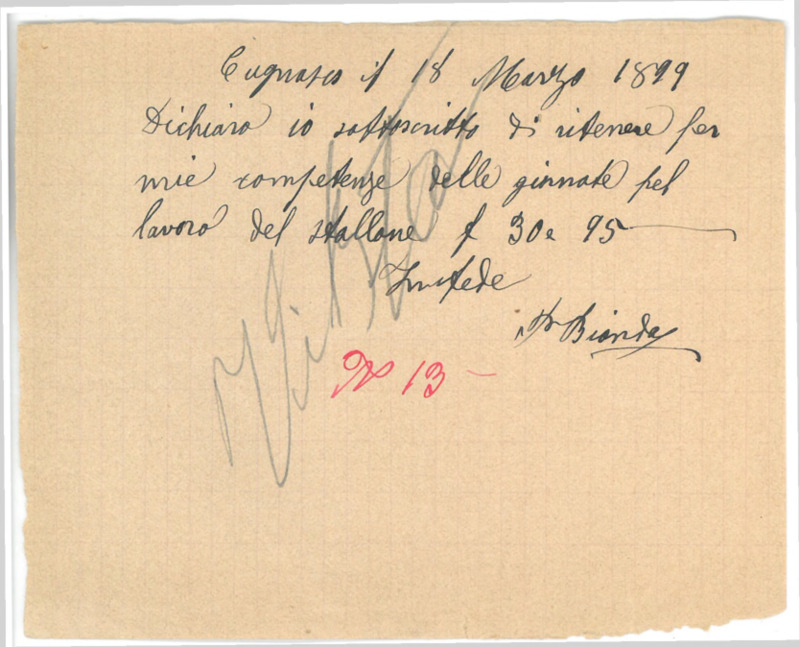 Cugnasco il 18 Marzo 1899
Dichiaro io sottoscritto di ritenere per
mie competenze delle giornate pel
lavoro del stallone f 30 e 95
In fede
Bionda
N° 13 -